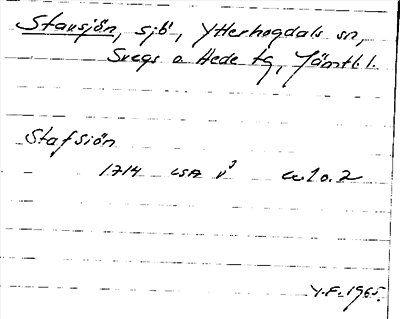 Stavsjön, sjö, Ytterhogdals sn,
Svegs o Hede tg, Jämtl. l.
Stafsiön
1714 LSA
Y.F. 1965.